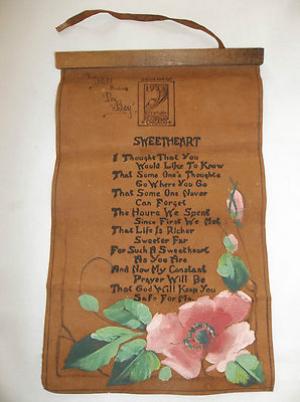 SWEETHEART
I Thought That You
Would Like To Know
That Some One's Thoughts
Go Where You Go
That Some One Never
Can Forget
The Hours We Spent
Since First We Met
That Life Is Richer
Sweeter Far
For Such A Sweetheart
As You Are
And Now My Constant
Prayer Will Be
That God Will Keep You
Safe For Me